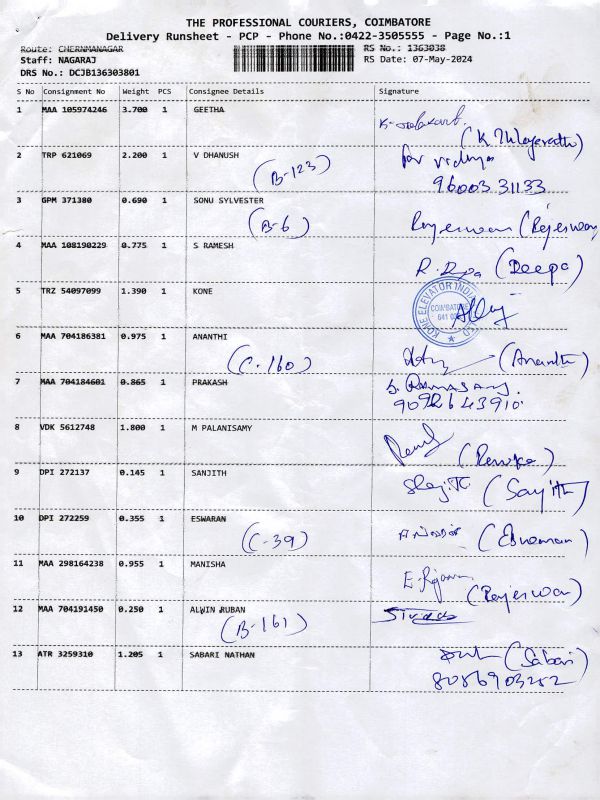 THE PROFESSIONAL COURIERS, COIMBATORE
Delivery Runsheet - PCP - Phone No.:0422-3505555 - Page No.:1
Route: CHERNMANAGAR RS No.: 1363038
Staff: NAGARAJ RS Date: 07-May-2024
DRS No.: DCJB136303801
S No Consignment No Weight PCS Consignee Details Signature
1 MAA 105974246 3.700 1 GEETHA
2 TRP 621069 2.200 1 V DHANUSH for vidhya
(B-123) 96003 31133
3 GPM 371380 0.690 1 SONU SYLVESTER
(B-6) Rajeswari (Rajeswari)
4 MAA 108190229 0.775 1 S RAMESH
R. Deepa (Deepa)
5 TRZ 54097099 1.390 1 KONE
KONE ELEVATOR INDIA LTD
COIMBATORE
6 MAA 704186381 0.975 1 ANANTHI
(C-160) (Ananthi)
7 MAA 704184601 0.865 1 PRAKASH S. Ramasamy
9092643910
8 VDK 5612748 1.800 1 M PALANISAMY
(Renuka)
9 DPI 272137 0.145 1 SANJITH
10 DPI 272259 0.355 1 ESWARAN
(C-39) (Eswaran)
11 MAA 298164238 0.955 1 MANISHA
(Rajeswari)
12 MAA 704191450 0.250 1 ALWIN RUBAN
(B-161)
13 ATR 3259310 1.205 1 SABARI NATHAN (Sabari)
8086903252